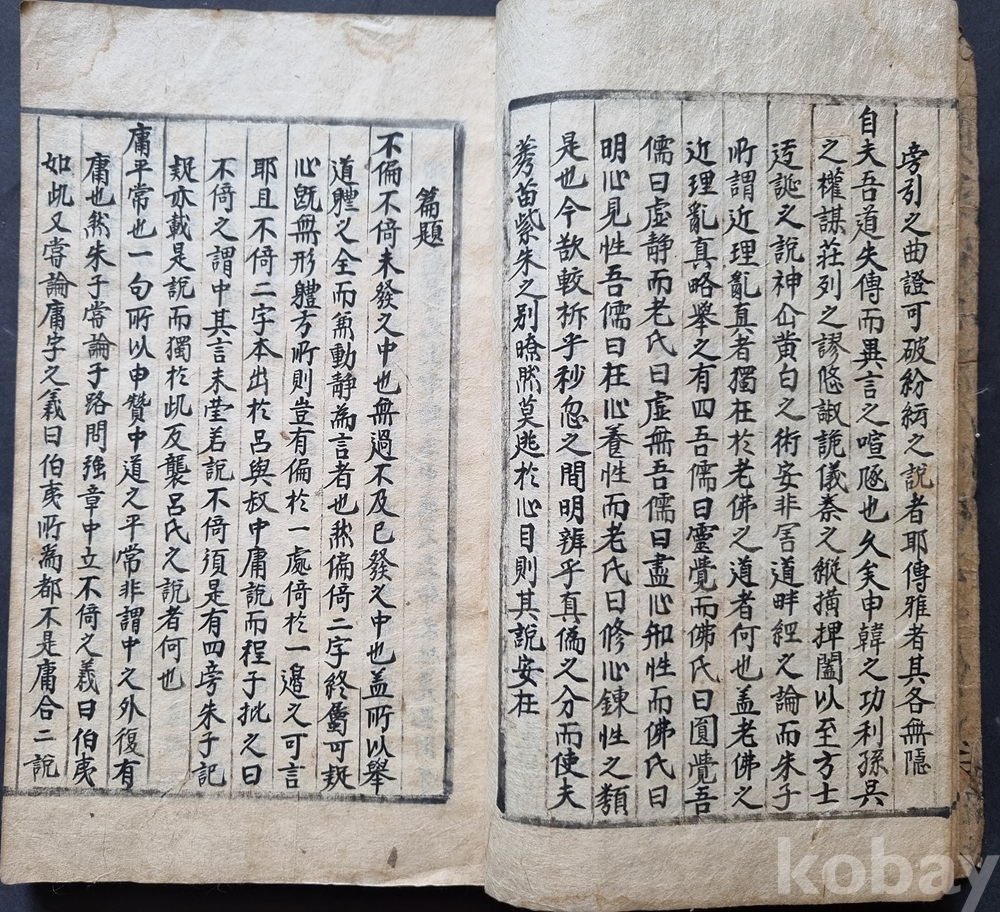 旁引之曲證可破紛紜之說者耶傳雅者其各無隱
自夫吾道失傳而異言之喧豗也久矣申韓之功利孫吳
之權謀莊列之謬悠諔詭儀秦之縱橫捭闔以至方士
迃誕之說神仚黄白之術安非害道畔經之論而朱子
所謂近理亂真者獨在於老佛之道者何也盖老佛之
近理亂真略舉之有四吾儒曰靈覺而佛氏曰圓覺吾
儒曰虛静而老氏曰虛無吾儒曰盡心知性而佛氏曰
明心見性吾儒曰存心養性而老氏曰修心鍊性之類
是也今欲較析乎秒忽之間明辨乎真僞之分而使夫
莠苗紫朱之別瞭然莫逃於心目則其說安在
篇題
不偏不倚未發之中也無過不及已發之中也盖所以舉
道軆之全而兼動静為言者也然偏倚二字終當可疑
心旣無形軆方所則豈有偏於一處倚於一邊之可言
耶且不倚二字本出於呂與叔中庸說而程子批之曰
不倚之謂中其言未瑩若說不倚須是有四旁朱子記
疑亦載是說而獨於此反襲呂氏之說者何也
庸平常也一句所以申贊中道之平常非謂中之外復有
庸也然朱子嘗論子路問强章中立不倚之義曰伯夷
如此又嘗論庸字之義曰伯夷所為都不是庸合二說
kobay